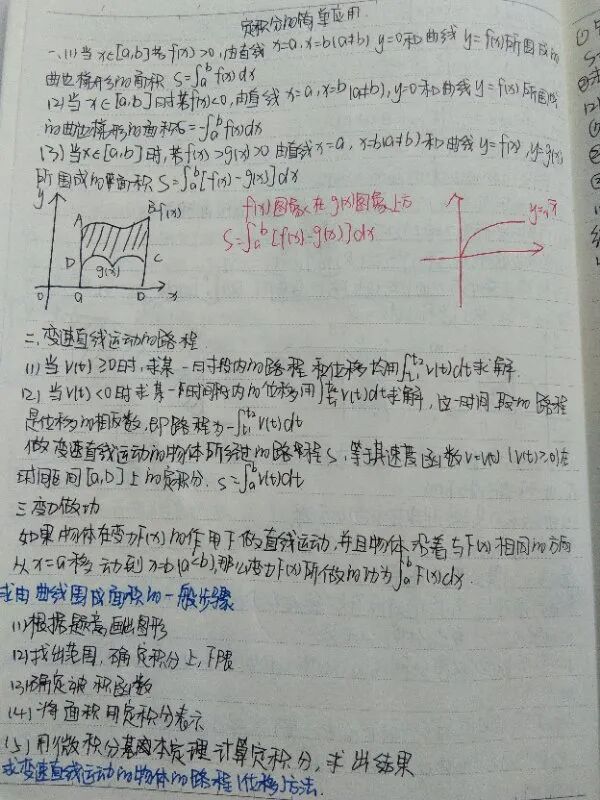 定积分的简单应用.
一、(1)当x∈[a,b]若f(x)>0,由直线x=a,x=b(a≠b) y=0和曲线y=f(x)所围成的
曲边梯形的面积 S=∫ₐᵇf(x)dx
(2)当x∈[a,b]时若f(x)<0,由直线x=a,x=b(a≠b),y=0和曲线y=f(x)所围成
的曲边梯形的面积S=∫ₐᵇf(x)dx
(3)当x∈[a,b]时,若f(x)>g(x)>0由直线x=a,x=b(a≠b)和曲线y=f(x),y=g(x)
所围成的平面积S=∫ₐᵇ[f(x)-g(x)]dx
f(x)图象在g(x)图象上方
S=∫ₐᵇ[f(x)-g(x)]dx
y
A
B f(x)
D
C
g(x)
0 a D x
y=√x
二.变速直线运动的路程
(1)当v(t)≥0时,求某一时段内的路程和位移均用∫ₜ₁ᵗ²v(t)dt求解.
(2)当v(t)<0时求某一时间段内的位移用∫ₜ₁ᵗ²v(t)dt求解,这一时间段的路程
是位移的相反数,即路程为-∫ₜ₁ᵗ²v(t)dt
做变速直线运动的物体所经过的路程S,等于其速度函数v=v(t)(v(t)≥0)在
时间区间[a,b]上的定积分.S=∫ₐᵇv(t)dt
三变力做功
如果物体在变力F(x)的作用下做直线运动,并且物体沿着与F(x)相同的方向
从x=a移动到x=b(a<b),那么变力F(x)所做的功为∫ₐᵇF(x)dx.
求由曲线围成面积的一般步骤
(1)根据题意画出图形
(2)找出范围,确定积分上,下限
(3)确定被积函数
(4)将面积用定积分表示
(5)用微积分基本定理计算定积分,求出结果
求变速直线运动的物体的路程(位移)方法.